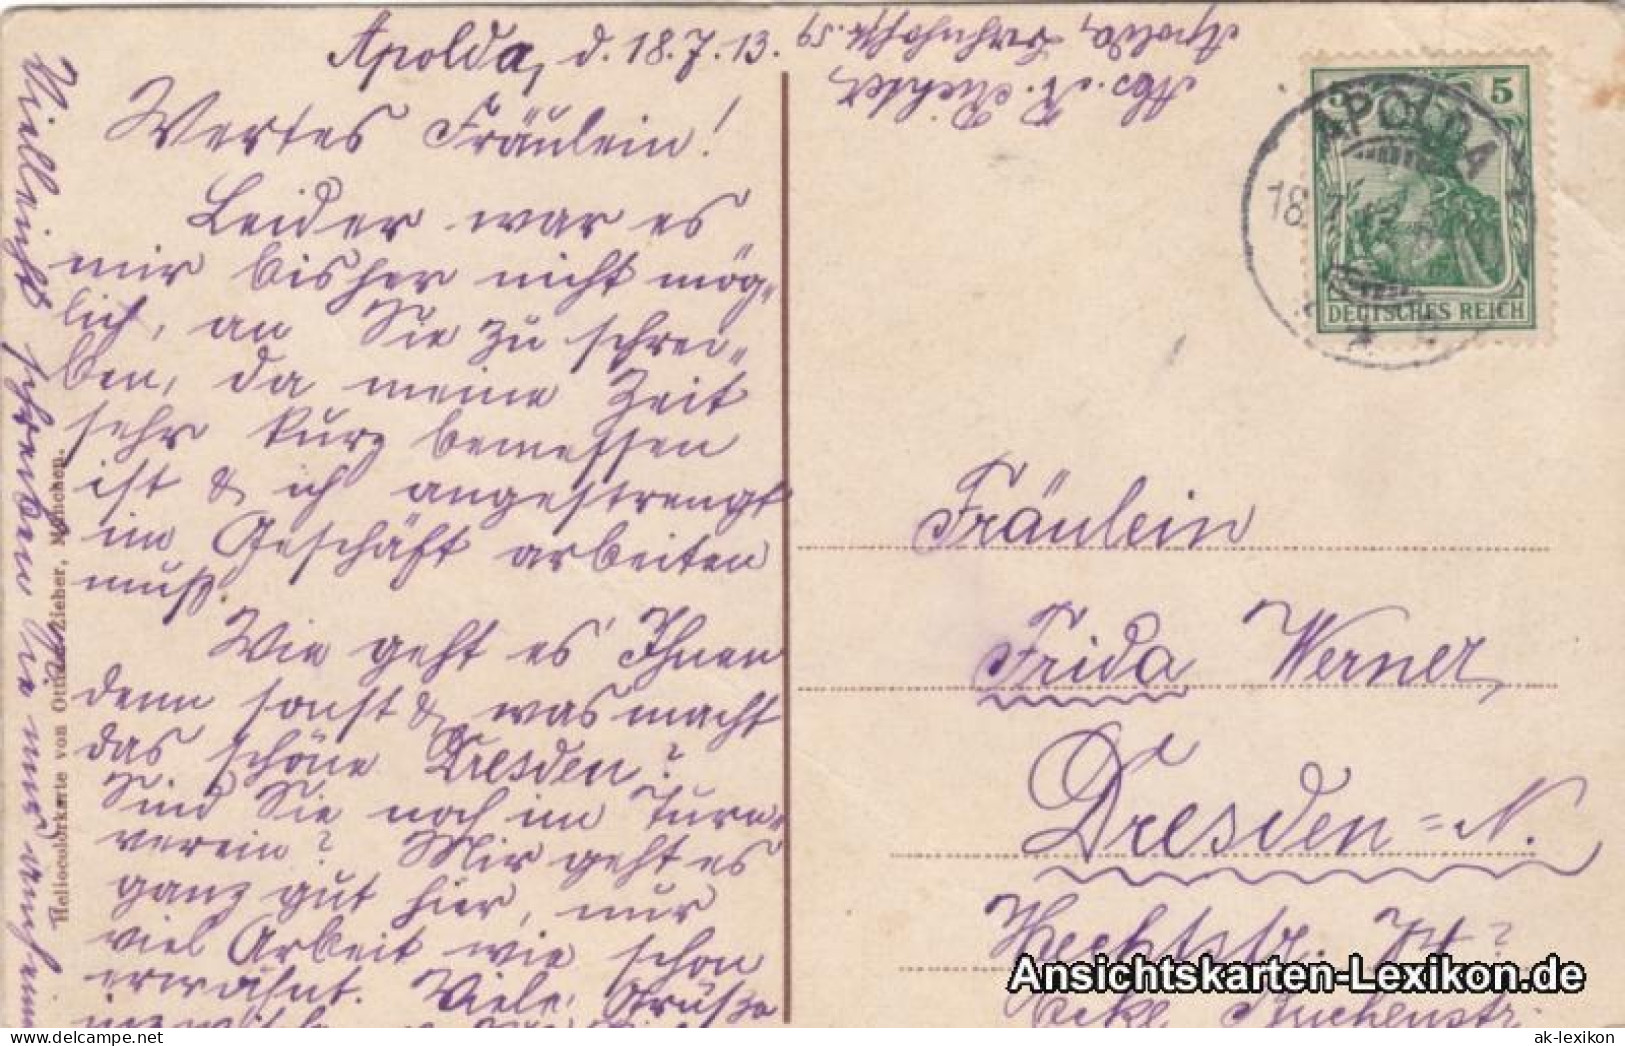 Apolda, d. 18.7.13.
Wertes Fräulein!
Leider war es
mir bisher nicht mög„
lich, an Sie zu schrei„
ben, da meine Zeit
sehr kurz bemessen
ist & ich angestrengt
im Geschäft arbeiten
muß.
Wie geht es Ihnen
denn sonst & was macht
das schöne Dresden?
Sind Sie noch im Turn„
verein? Mir geht es
ganz gut hier, nur
viel Arbeit wie schon
erwähnt. Viele Grüße
Vielleicht schreiben Sie mir auch
Heliocolorkarte von Ottmar Zieher, München.
Abs. R. Richter
Apolda, Bahnhofstr. 59
5
DEUTSCHES REICH
APOLDA
18.7.13
Fräulein
Frida Werner
Dresden=N.
Hechtstr.
Ecke Buchenstr.
Ansichtskarten-Lexikon.de
ak-lexikon